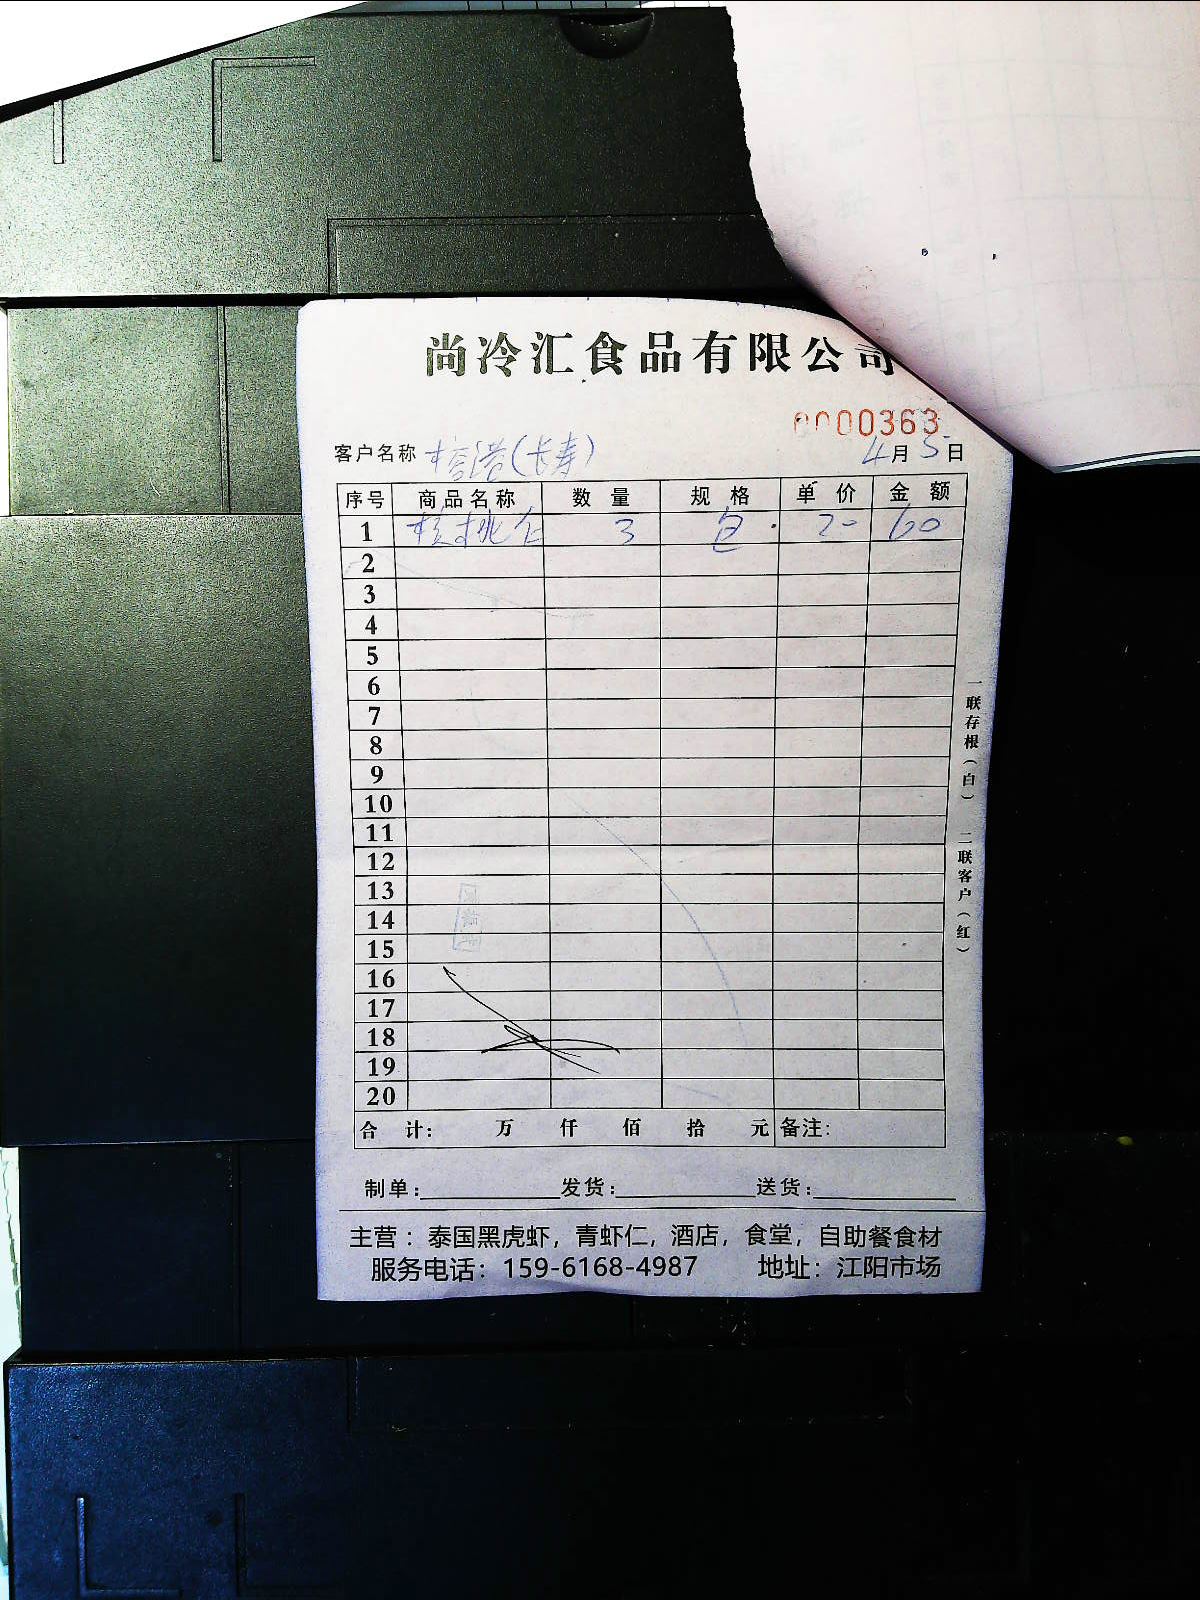 尚冷汇食品有限公司
0000363
客户名称 榕港(长寿) 4月5日
序号 商品名称 数量 规格 单价 金额
1 核桃仁 3 包 20 60
2
3
4
5
6
7
8
9
10
11
12
13
14
15
16
17
18
19
20
合 计: 万 仟 佰 拾 元 备注:
制单: 发货: 送货:
主营：泰国黑虎虾，青虾仁，酒店，食堂，自助餐食材
服务电话：159-6168-4987 地址：江阳市场
一联存根(白) 二联客户(红)